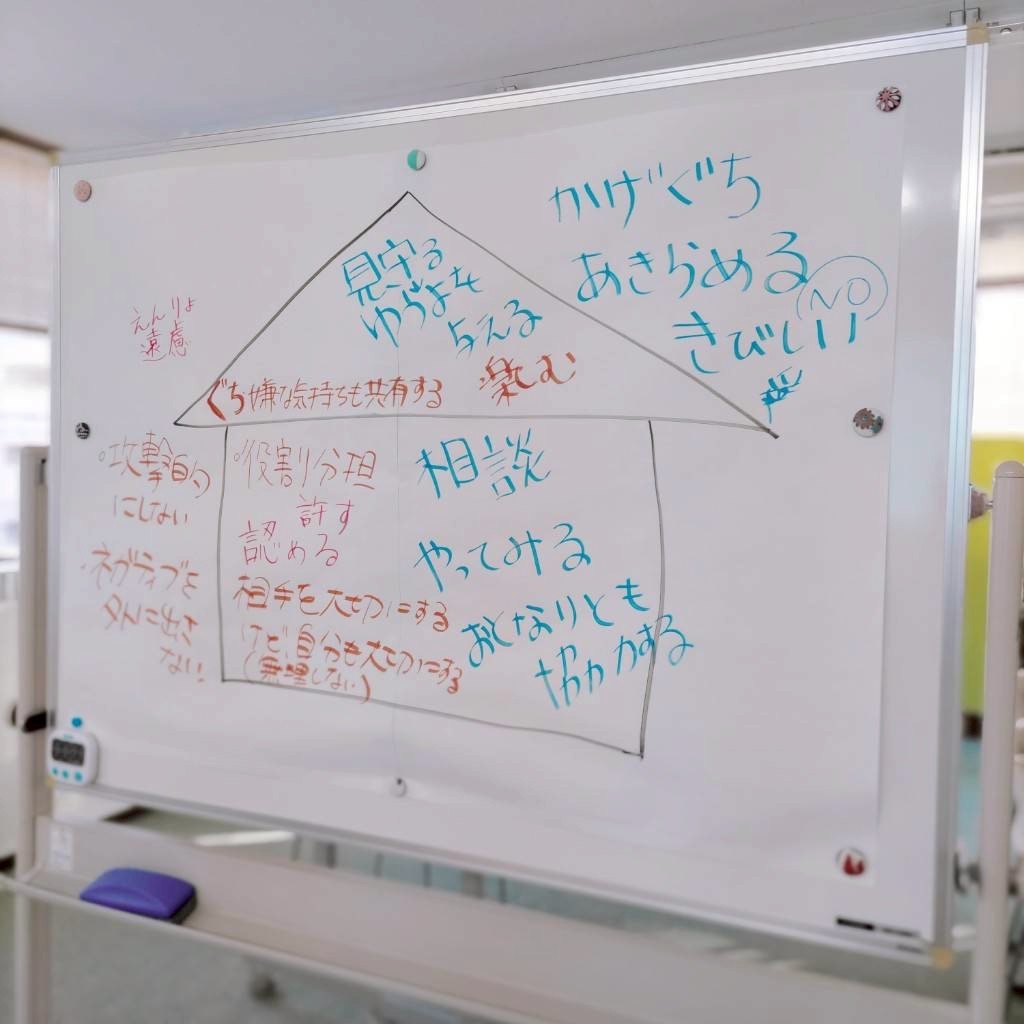 かげぐち
あきらめる
(NO)
きびしい
見守る
ゆうよを
与える
楽しむ
ぐち嫌な気持ちも共有する
えんりょ
遠慮
攻撃的
にしない
ネガティブを
外に出さ
ない。
役割分担
許す
認める
相手を大切にする
けど、自分も大切にする
(無理しない)
相談
やってみる
おとなりとも
協力する